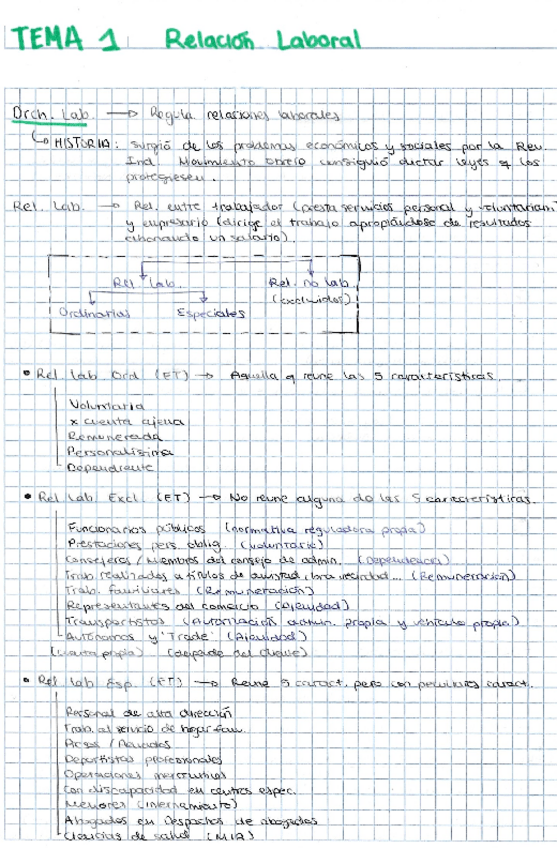 TEMA 1 Relación Laboral
Drch. Lab. → Regula relaciones laborales
HISTORIA: surgió de los problemas económicos y sociales por la Rev.
Ind. Movimiento obrero consiguió dictar leyes q los
protegiesen.
Rel. Lab. → Rel. entre trabajador (presta servicios personal y voluntariam.)
y empresario (dirige el trabajo apropiándose de resultados
abonando un salario).
Rel. Lab. Rel. no lab.
(excluidos)
Ordinarias Especiales
• Rel. lab. Ord. (ET) → Aquella q reune las 5 características.
Voluntaria
x cuenta ajena
Remunerada
Personalísima
Dependiente
• Rel. Lab. Excl. (ET) → No reune alguna de las 5 características.
Funcionarios públicos (normativa reguladora propia)
Prestaciones pers. oblig. (voluntario)
Consejeros / Miembros del consejo de admin. (Dependencia)
Trab. realizados a títulos de amistad, bna vecindad... (Remuneración)
Trab. familiares (Remuneración)
Representantes del comercio (Ajenidad)
Transportistas (Autorización admin. propia y vehículo propio)
Autónomos y "Trade" (Ajenidad)
(cuenta propia) (depende del cliente)
• Rel. lab. Esp. (ET) → Reune 5 caract. pero con peculiares caract.
Personal de alta dirección
Trab. al servicio de hogar fam.
Penados
Deportistas profesionales
Operaciones mercantiles
Con discapacidad en centros espec.
Menores (internamiento)
Abogados en Despachos de abogados
Ciencias de salud (MIR)